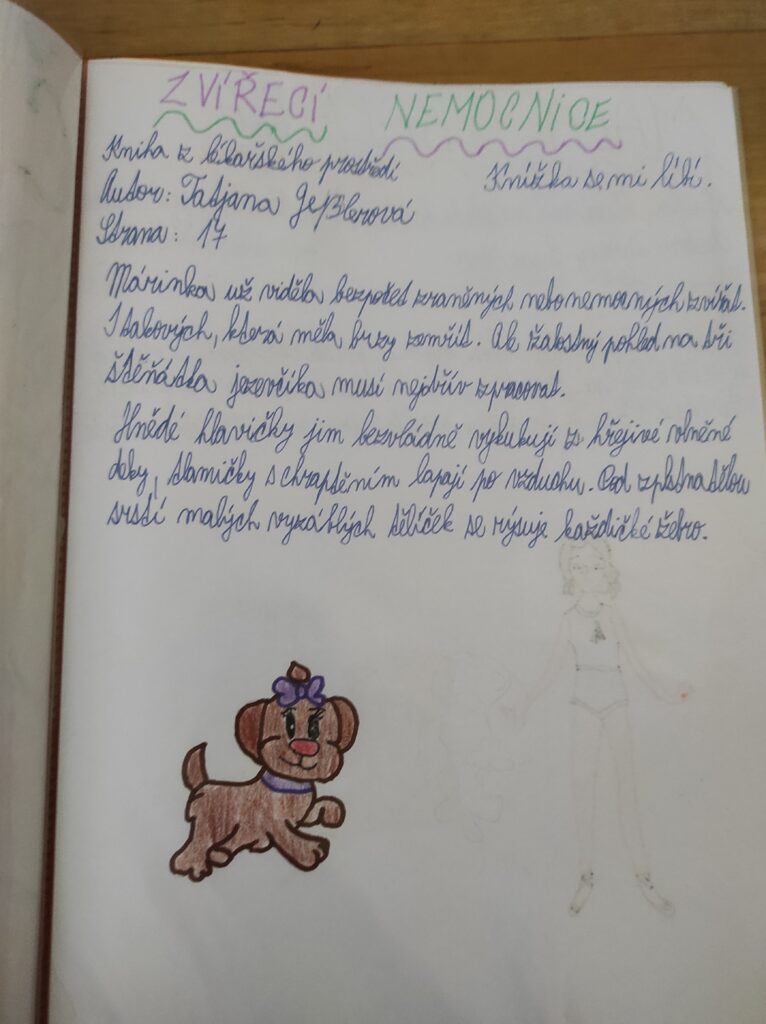 ZVÍŘECÍ NEMOCNICE
Kniha z lékařského prostředí
Knížka se mi líbí.
Autor: Tatjana Geβlerová
Strana: 17
Márinka už viděla bezpočet zraněných nebo nemocných zvířat.
I takových, která měla brzy zemřít. Ale žalostný pohled na tři
štěňátka jezevčíka musí nejdřív zpracovat.
Hnědé hlavičky jim bezvládně vykukují z hřejivé vlněné
deky, tlamičky s chraptěním lapají po vzduchu. Pod zplstnatělou
srstí malých vyzáblých tělíček se rýsuje každičké žebro.